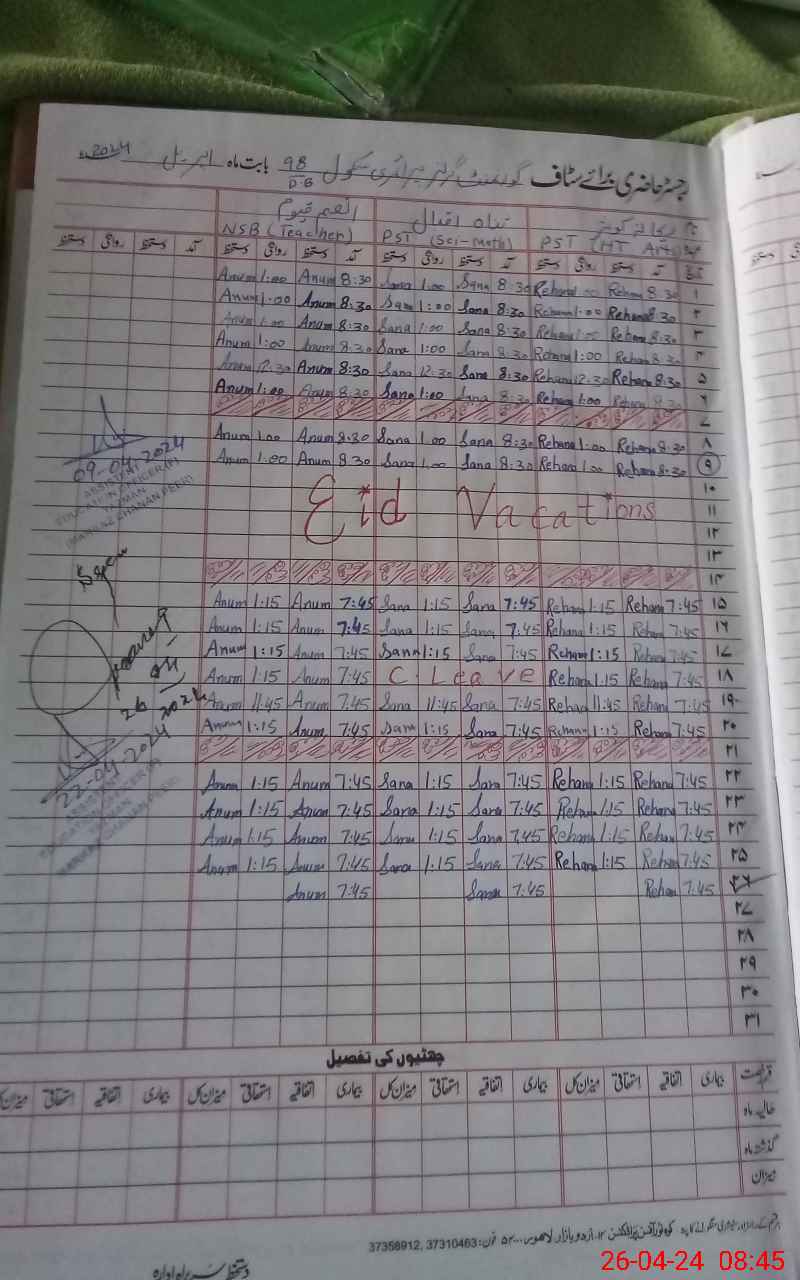 رجسٹر حاضری برائے سٹاف گورنمنٹ گرلز پرائمری سکول 98/D.B بابت ماہ اپریل 2024ء
ریحانہ کوثر ثناء اقبال انعم قیوم
PST (HT Arts) PST (Sci-Math) NSB (Teacher)
آمد دستخط روانگی دستخط آمد دستخط روانگی دستخط آمد دستخط روانگی دستخط آمد دستخط روانگی دستخط
Anum 1:00 Anum 8:30 Sana 1:00 Sana 8:30 Rehana 1:00 Rehana 8:30 ۱
Anum 1:00 Anum 8:30 Sana 1:00 Sana 8:30 Rehana 1:00 Rehana 8:30 ۲
Anum 1:00 Anum 8:30 Sana 1:00 Sana 8:30 Rehana 1:00 Rehana 8:30 ۳
Anum 1:00 Anum 8:30 Sana 1:00 Sana 8:30 Rehana 1:00 Rehana 8:30 ۴
Anum 12:30 Anum 8:30 Sana 12:30 Sana 8:30 Rehana 12:30 Rehana 8:30 ۵
Anum 1:00 Anum 8:30 Sana 1:00 Sana 8:30 Rehana 1:00 Rehana 8:30 ۶
۷
Anum 1:00 Anum 8:30 Sana 1:00 Sana 8:30 Rehana 1:00 Rehana 8:30 ۸
Anum 1:00 Anum 8:30 Sana 1:00 Sana 8:30 Rehana 1:00 Rehana 8:30 ۹
09-04-2024
ASSISTANT
EDUCATION OFFICER (F)
۱۰
Eid Vacations ۱۱
۱۲
۱۳
۱۴
Anum 1:15 Anum 7:45 Sana 1:15 Sana 7:45 Rehana 1:15 Rehana 7:45 ۱۵
Anum 1:15 Anum 7:45 Sana 1:15 Sana 7:45 Rehana 1:15 Rehana 7:45 ۱۶
Anum 1:15 Anum 7:45 Sana 1:15 Sana 7:45 Rehana 1:15 Rehana 7:45 ۱۷
Anum 1:15 Anum 7:45 C. Leave Rehana 1:15 Rehana 7:45 ۱۸
Anum 11:45 Anum 7:45 Sana 11:45 Sana 7:45 Rehana 11:45 Rehana 7:45 ۱۹
Anum 1:15 Anum 7:45 Sana 1:15 Sana 7:45 Rehana 1:15 Rehana 7:45 ۲۰
26 04 2024
۲۱
22-04-2024
ASSISTANT
EDUCATION OFFICER (F)
Anum 1:15 Anum 7:45 Sana 1:15 Sana 7:45 Rehana 1:15 Rehana 7:45 ۲۲
Anum 1:15 Anum 7:45 Sana 1:15 Sana 7:45 Rehana 1:15 Rehana 7:45 ۲۳
Anum 1:15 Anum 7:45 Sana 1:15 Sana 7:45 Rehana 1:15 Rehana 7:45 ۲۴
Anum 1:15 Anum 7:45 Sana 1:15 Sana 7:45 Rehana 1:15 Rehana 7:45 ۲۵
Anum 7:45 Sana 7:45 Rehana 7:45 ۲۶
۲۷
۲۸
۲۹
۳۰
۳۱
چھٹیوں کی تفصیل
بیماری اتفاقیہ استحقاقی میزان کل بیماری اتفاقیہ استحقاقی میزان کل بیماری اتفاقیہ استحقاقی میزان کل بیماری اتفاقیہ استحقاقی میزان کل
حالیہ ماہ
گذشتہ ماہ
میزان
اردو بازار لاہور فون: 37310463, 37358912
دستخط سربراہ ادارہ
26-04-24 08:45